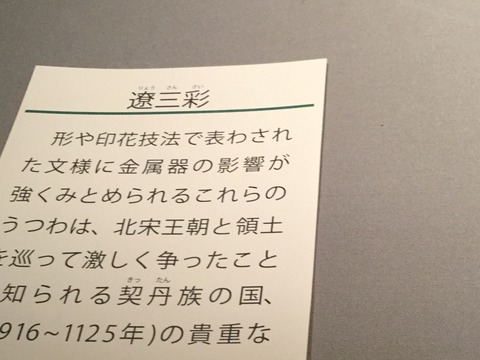 りょう さん さい
遼三彩
形や印花技法で表わされ
た文様に金属器の影響が
強くみとめられるこれらの
うつわは、北宋王朝と領土
を巡って激しく争ったこと
知られる契丹族の国、
きっ たん
916~1125年)の貴重な